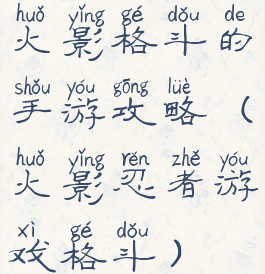 huǒ yǐng gé dǒu de
火影格斗的
shǒu yóu gōng lüè
手游攻略（
huǒ yǐng rěn zhě yóu
火影忍者游
xì gé dǒu
戏格斗）